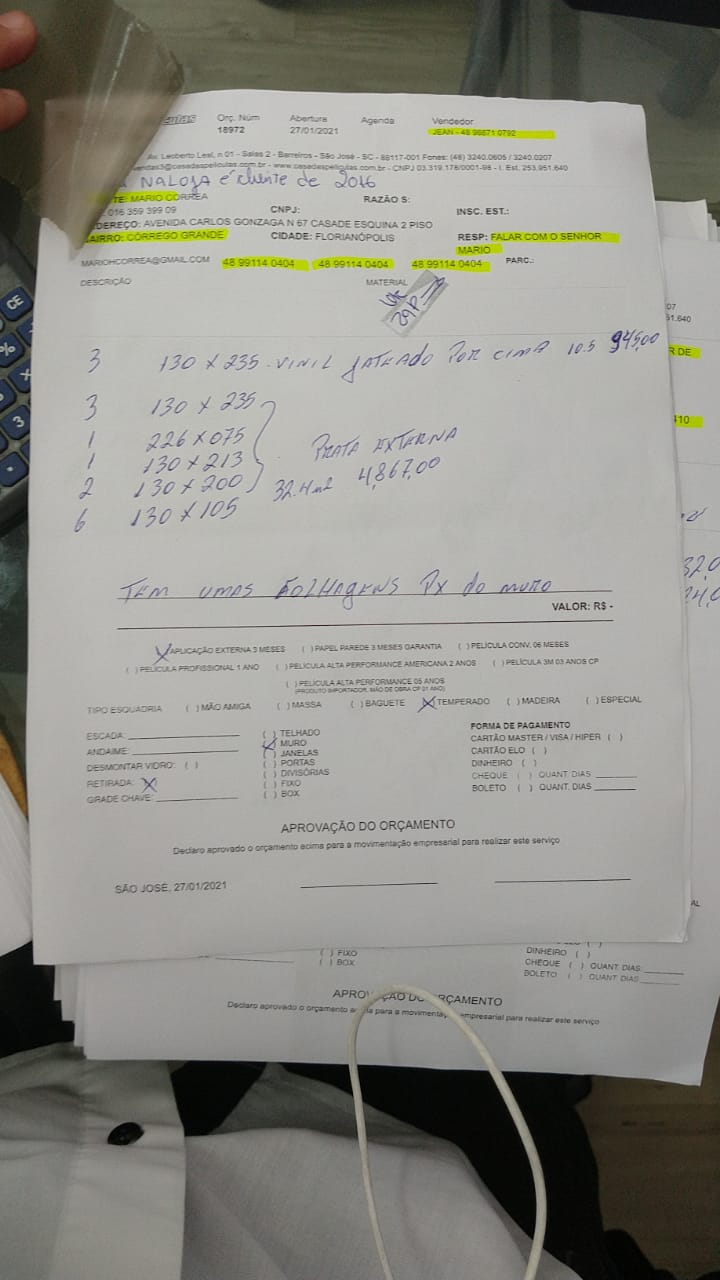 Orç. Núm Abertura Agenda Vendedor
18972 27/01/2021 JEAN - 48 98871 0792
Av. Leoberto Leal, n 01 - Salas 2 - Barreiros - São José - SC - 88117-001 Fones: (48) 3240.0605 / 3240.0207
vendas3@casadaspeliculas.com.br - www.casadaspeliculas.com.br - CNPJ 03.319.178/0001-98 - I. Est. 253.951.640
NA LOJA é cliente de 2016
TE: MARIO CORREA RAZÃO S:
016 359 399 09 CNPJ: INSC. EST.:
DEREÇO: AVENIDA CARLOS GONZAGA N 67 CASADE ESQUINA 2 PISO
BAIRRO: CORREGO GRANDE CIDADE: FLORIANÓPOLIS RESP: FALAR COM O SENHOR
MARIO
MARIOHCORREA@GMAIL.COM 48 99114 0404 48 99114 0404 48 99114 0404 PARC.:
DESCRIÇÃO MATERIAL
3 130 x 235 VINIL JATEADO POR CIMA 10.5 945,00
3 130 x 235
1 226 x 075
1 130 x 213 PRATA EXTERNA
2 130 x 200 32.4m2 4,867,00
6 130 x 105
TEM UMAS FOLHAGENS PX do muro
VALOR: R$ -
X APLICAÇÃO EXTERNA 3 MESES ( ) PAPEL PAREDE 3 MESES GARANTIA ( ) PELÍCULA CONV. 06 MESES
( ) PELÍCULA PROFISSIONAL 1 ANO ( ) PELÍCULA ALTA PERFORMANCE AMERICANA 2 ANOS ( ) PELÍCULA 3M 03 ANOS CP
( ) PELÍCULA ALTA PERFORMANCE 05 ANOS
(PRODUTO IMPORTADOR, MÃO DE OBRA CP 01 ANO)
TIPO ESQUADRIA ( ) MÃO AMIGA ( ) MASSA ( ) BAGUETE (X) TEMPERADO ( ) MADEIRA ( ) ESPECIAL
ESCADA: ( ) TELHADO FORMA DE PAGAMENTO
ANDAIME: (X) MURO CARTÃO MASTER / VISA / HIPER ( )
DESMONTAR VIDRO: ( ) ( ) JANELAS CARTÃO ELO ( )
RETIRADA: X ( ) PORTAS DINHEIRO ( )
GRADE CHAVE: ( ) DIVISÓRIAS CHEQUE ( ) QUANT. DIAS
( ) FIXO BOLETO ( ) QUANT. DIAS
( ) BOX
APROVAÇÃO DO ORÇAMENTO
Declaro aprovado o orçamento acima para a movimentação empresarial para realizar este serviço
SÃO JOSÉ, 27/01/2021
( ) FIXO DINHEIRO ( )
( ) BOX CHEQUE ( ) QUANT. DIAS
BOLETO ( ) QUANT. DIAS
Declaro aprovado o orçamento para a movimentação empresarial para realizar este serviço